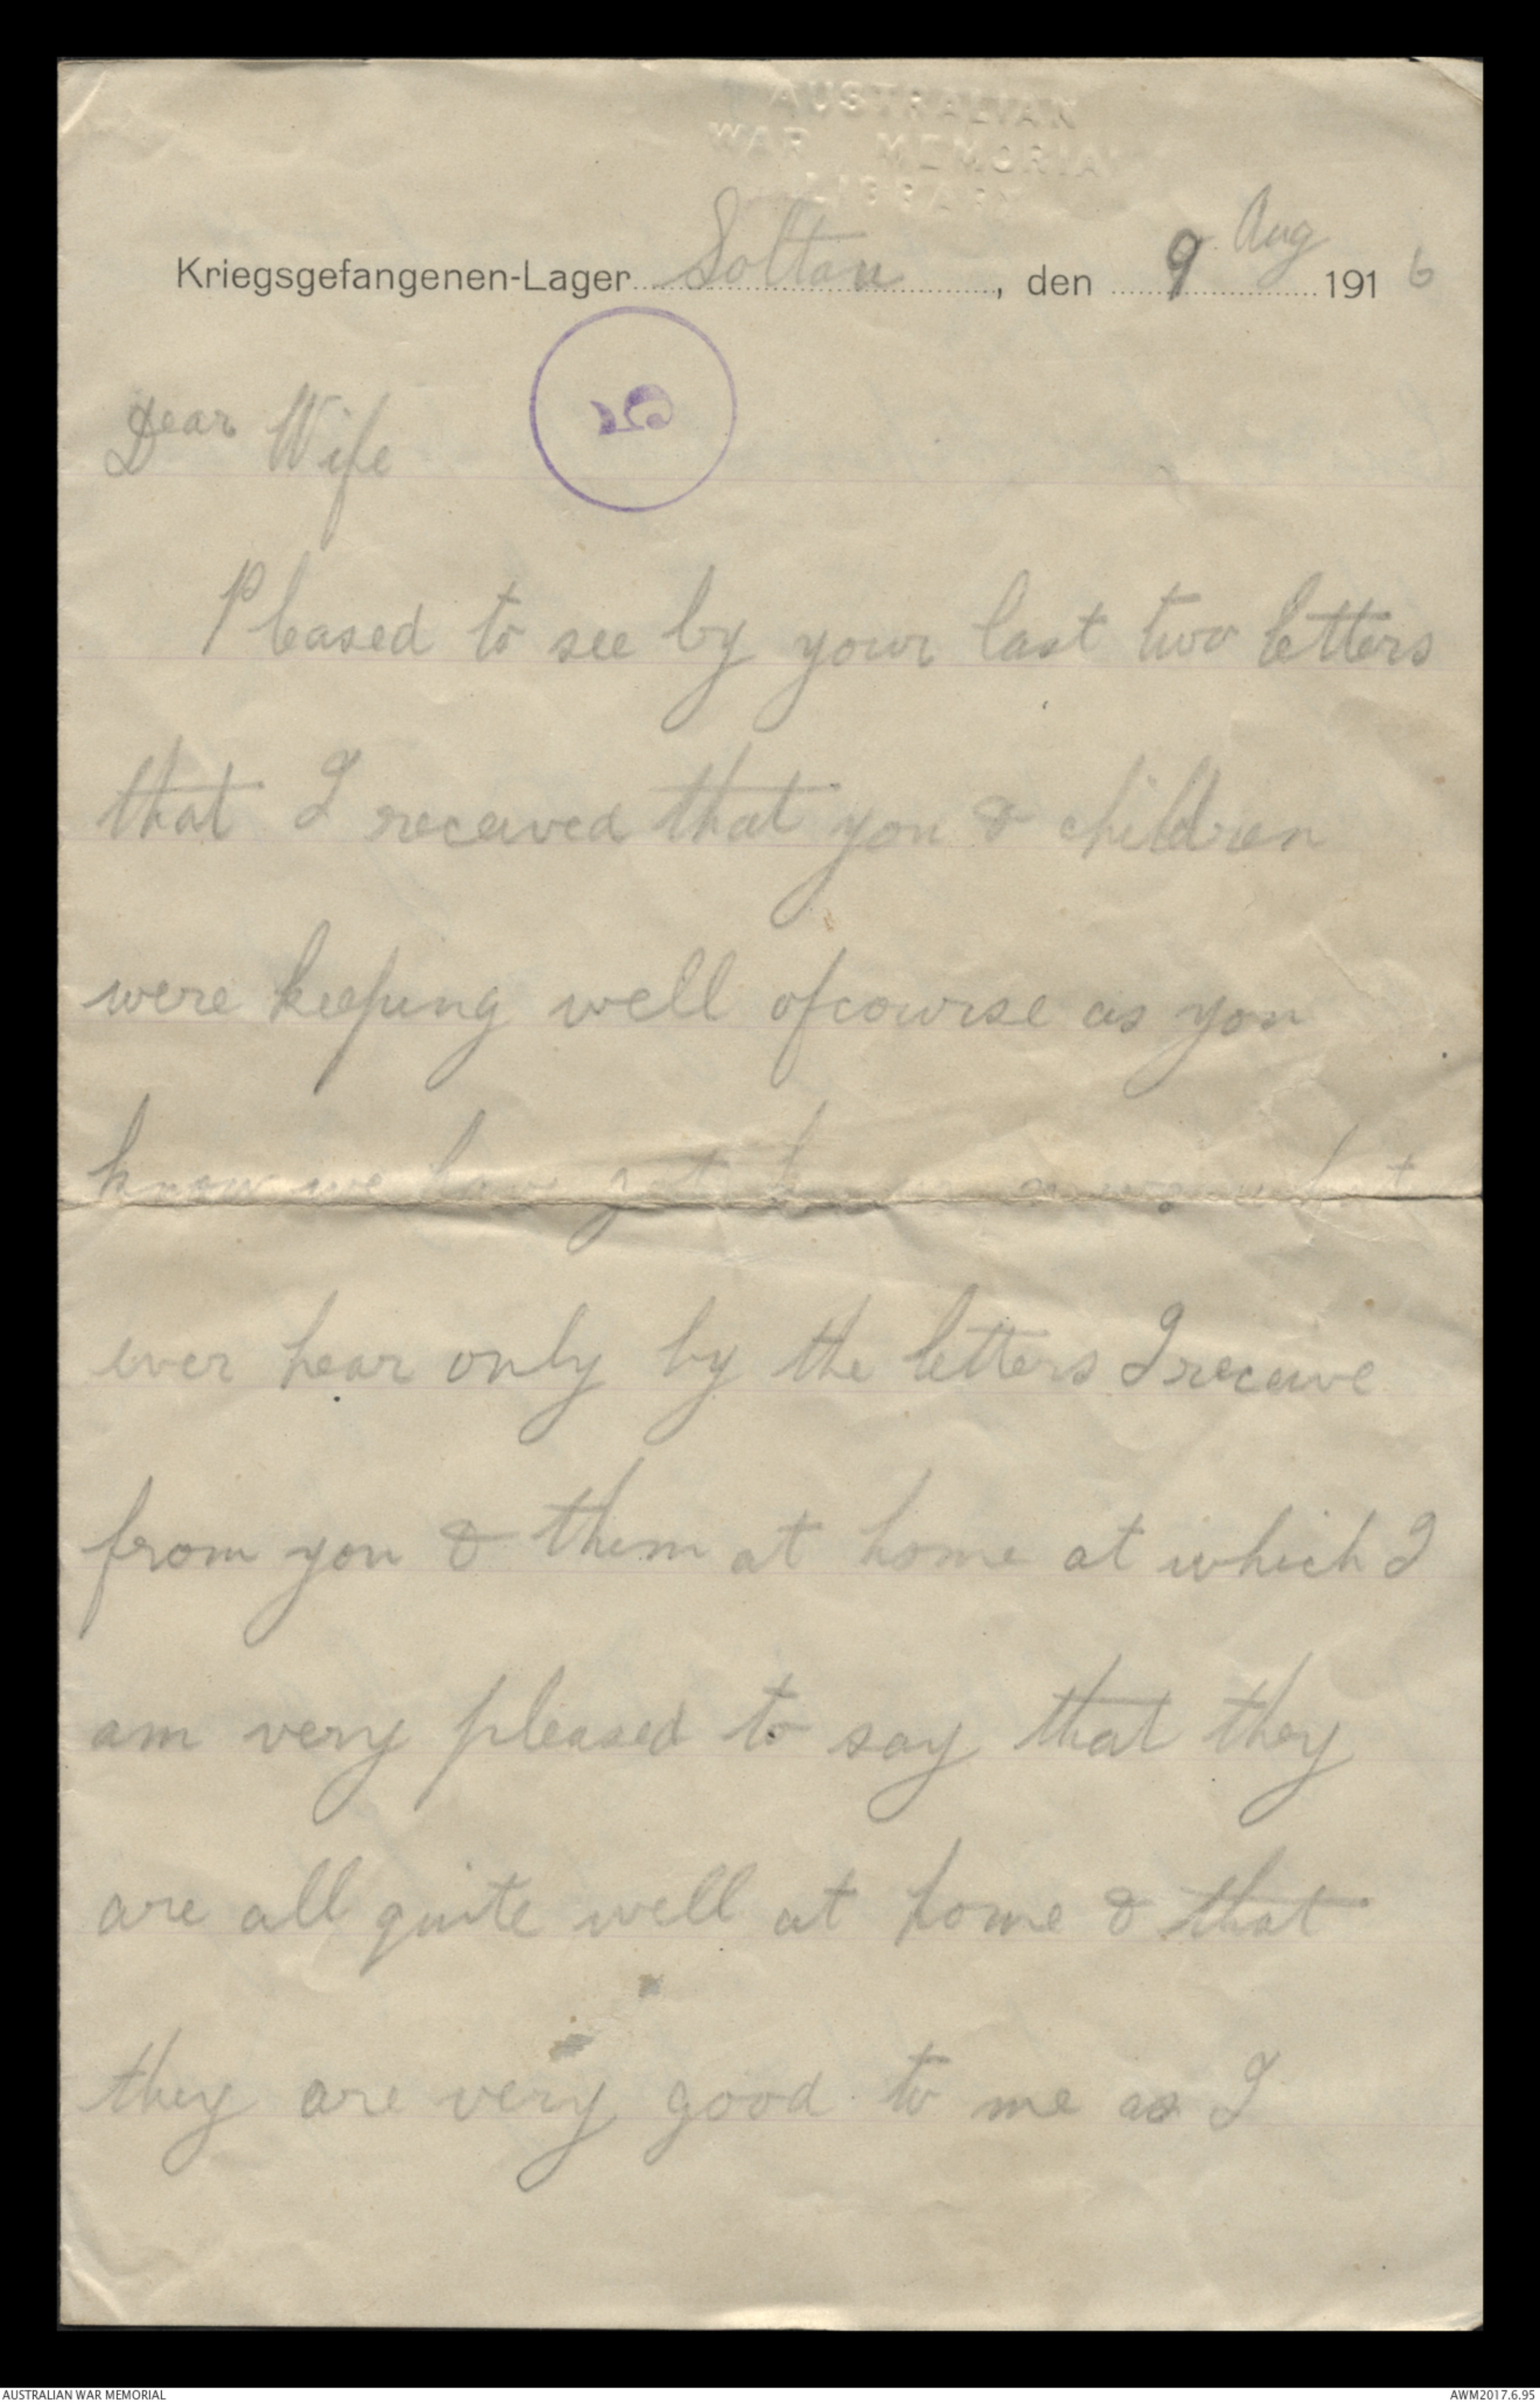 AUSTRALIAN
WAR MEMORIAL
LIBRARY
Kriegsgefangenen-Lager Soltau, den 9 Aug 1916
5
Dear Wife
Pleased to see by your last two letters
that I received that you & children
were keeping well ofcourse as you
know we have got
ever hear only by the letters I receive
from you & them at home at which I
am very pleased to say that they
are all quite well at home & that
they are very good to me as I
AUSTRALIAN WAR MEMORIAL
AWM2017.6.95